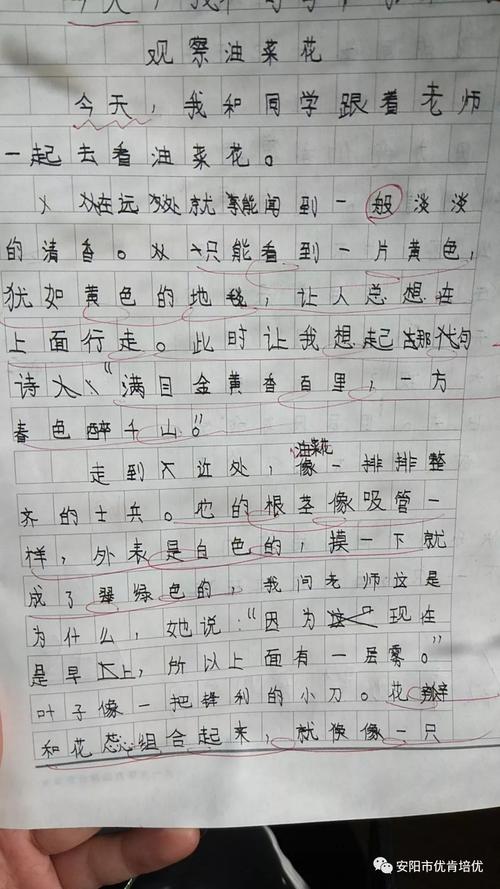 今天，我和同学
观察油菜花
今天，我和同学跟着老师
一起去看油菜花。
在远处就能闻到一般淡淡
的清香。只能看到一片黄色，
犹如黄色的地毯，让人总想在
上面行走。此时让我想起那句
诗“满目金黄香百里，一方
春色醉千山。”
走到近处，油菜花像一排排整
齐的士兵。它的根茎像吸管一
样，外表是白色的，摸一下就
成了翠绿色的，我问老师这是
为什么，她说：“因为现在
是早上，所以上面有一层雾。”
叶子像一把锋利的小刀。花瓣
和花蕊组合起来，就像一只
安阳市优肯培优